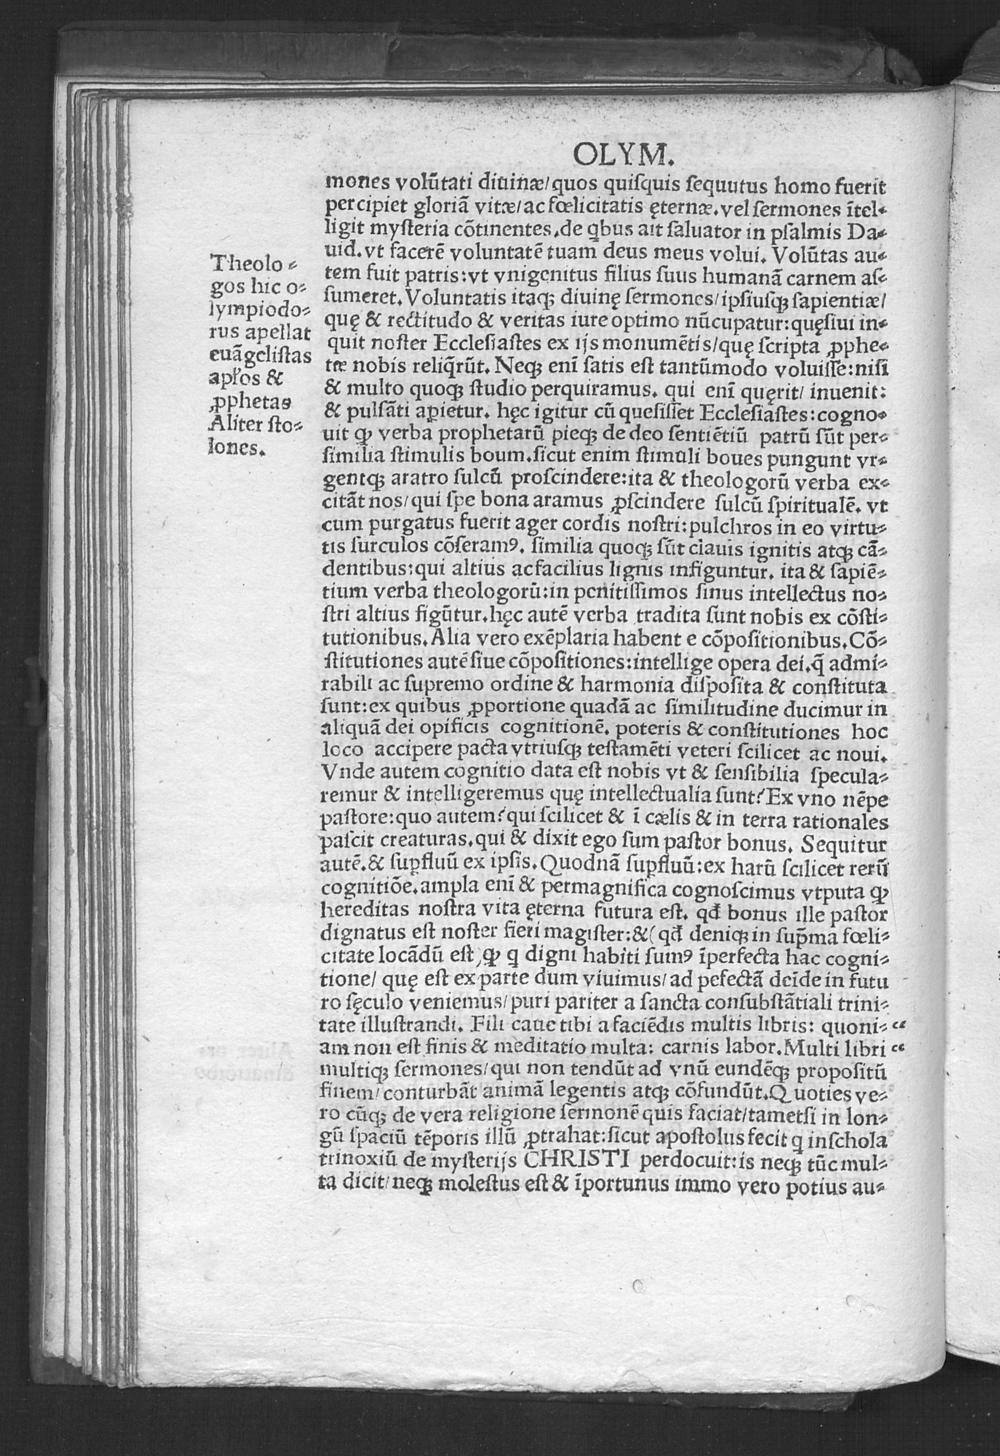 OLYM.
mones volũtati diuinæ/quos quiſquis ſequutus homo fuerit
percipiet gloriã vitæ/ac fœlicitatis ęternæ.vel ſermones ĩtel⸗
ligit myſteria cõtinentes.de qbus ait ſaluator in pſalmis Da⸗
uid.vt facerẽ voluntatẽ tuam deus meus volui. Volũtas au⸗
tem fuit patris:vt vnigenitus filius ſuus humanã carnem aſ⸗
ſumeret.Voluntatis itaqꝫ diuinę ſermones/ipſiuſqꝫ ſapientiæ/
quę & rectitudo & veritas iure optimo nũcupatur:quęſiui in⸗
quit noſter Eccleſiaſtes ex ijs monumẽtis/quę ſcripta ꝓphe⸗
tæ nobis reliq̃rũt. Neqꝫ enĩ ſatis eſt tantũmodo voluiſſe:niſi
& multo quoqꝫ ſtudio perquiramus. qui enĩ quęrit/ inuenit:
& pulſãti apietur. hęc igitur cũ queſiſſet Eccleſiaſtes:cogno⸗
uit ꝙ verba prophetarũ pieqꝫ de deo ſentiẽtiũ patrũ ſũt per⸗
ſimilia ſtimulis boum.ſicut enim ſtimuli boues pungunt vr⸗
gentqꝫ aratro ſulcũ proſcindere:ita & theologorũ verba ex⸗
citãt nos/qui ſpe bona aramus ꝓſcindere ſulcũ ſpiritualẽ. vt
cum purgatus fuerit ager cordis noſtri:pulchros in eo virtu⸗
tis ſurculos cõſeramꝰ. ſimilia quoqꝫ ſũt clauis ignitis atqꝫ cã⸗
dentibus:qui altius ac facilius lignis infiguntur. ita & ſapiẽ⸗
tium verba theologorũ:in penitiſſimos ſinus intellectus no⸗
ſtri altius figũtur.hęc autẽ verba tradita ſunt nobis ex cõſti⸗
tutionibus.Alia vero exẽplaria habent e cõpoſitionibus.Cõ⸗
ſtitutiones autẽ ſiue cõpoſitiones:intellige opera dei.q̃ admi⸗
rabili ac ſupremo ordine & harmonia diſpoſita & conſtituta
ſunt:ex quibus ꝓportione quadã ac ſimilitudine ducimur in
aliquã dei opificis cognitionẽ. poteris & conſtitutiones hoc
loco accipere pacta vtriuſqꝫ teſtamẽti veteri ſcilicet ac noui.
Vnde autem cognitio data eſt nobis vt & ſenſibilia ſpecula⸗
remur & intelligeremus quę intellectualia ſunt? Ex vno nẽpe
paſtore:quo autem?qui ſcilicet & ĩ cælis & in terra rationales
paſcit creaturas.qui & dixit ego ſum paſtor bonus. Sequitur
autẽ.& ſupfluũ ex ipſis.Quodnã ſupfluũ:ex harũ ſcilicet rerũ
cognitiõe.ampla enĩ & permagnifica cognoſcimus vtputa ꝙ
hereditas noſtra vita ęterna futura eſt. qđ bonus ille paſtor
dignatus eſt noſter fieri magiſter:&(qđ deniqꝫ in ſup̃ma fœli⸗
citate locãdũ eſt)ꝙ q digni habiti ſumꝰ ĩperfecta hac cogni⸗
tione/ quę eſt ex parte dum viuimus/ad pefectã deĩde in futu
ro ſęculo veniemus/puri pariter a ſancta conſubſtãtiali trini⸗
tate illuſtrandi. Fili caue tibi a faciẽdis multis libris: quoni⸗ “
am non eſt finis & meditatio multa: carnis labor.Multi libri “
multiqꝫ ſermones/qui non tendũt ad vnũ eundẽqꝫ propoſitũ
finem/conturbãt animã legentis atqꝫ cõfundũt.Quoties ve⸗
ro cũqꝫ de vera religione ſermonẽ quis faciat/tametſi in lon⸗
gũ ſpaciũ tẽporis illũ ꝓtrahat:ſicut apoſtolus fecit q in ſchola
trinoxiũ de myſterijs CHRISTI perdocuit:is neqꝫ tũc mul⸗
ta dicit/neqꝫ moleſtus eſt & ĩportunus immo vero potius au⸗
Theolo⸗
gos hic o⸗
lympiodo⸗
rus apellat
euãgeliſtas
apl̃os &
ꝓphetas
Aliter ſto⸗
lones.